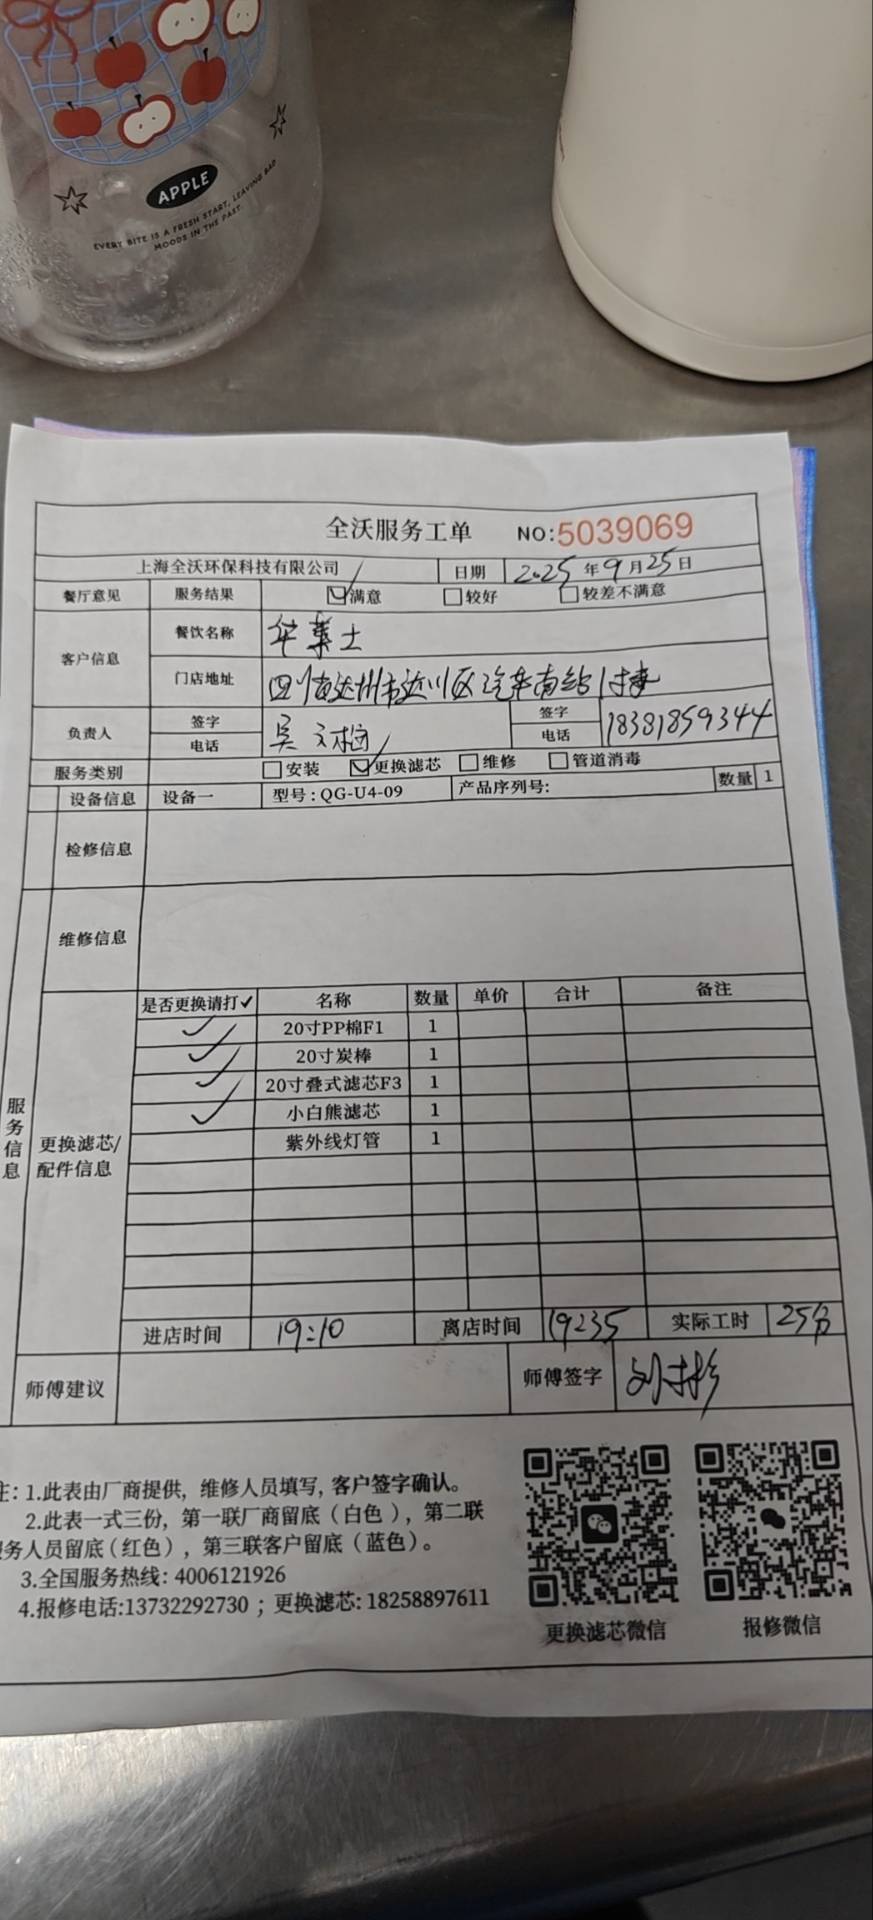 APPLE
EVERY BITE IS A FRESH START, LEAVING BAD
MOODS IN THE PAST.
全沃服务工单 NO:5039069
上海全沃环保科技有限公司 日期 2025年9月25日
餐厅意见 服务结果 满意 较好 较差不满意
客户信息 餐饮名称 华莱士
门店地址 四川省达州市达川区汽车南站
负责人 签字 吴 签字
电话 电话 18381859344
服务类别 安装 更换滤芯 维修 管道消毒
设备信息 设备一 型号:QG-U4-09 产品序列号: 数量 1
检修信息
维修信息
服务信息
更换滤芯/
配件信息
是否更换请打✓ 名称 数量 单价 合计 备注
✓ 20寸PP棉F1 1
✓ 20寸炭棒 1
✓ 20寸叠式滤芯F3 1
✓ 小白熊滤芯 1
紫外线灯管 1
进店时间 19:10 离店时间 19:35 实际工时 25分
师傅建议 师傅签字 刘
注: 1.此表由厂商提供, 维修人员填写, 客户签字确认。
2.此表一式三份, 第一联厂商留底(白色), 第二联
服务人员留底(红色), 第三联客户留底(蓝色)。
3.全国服务热线: 4006121926
4.报修电话:13732292730 ; 更换滤芯: 18258897611
更换滤芯微信 报修微信